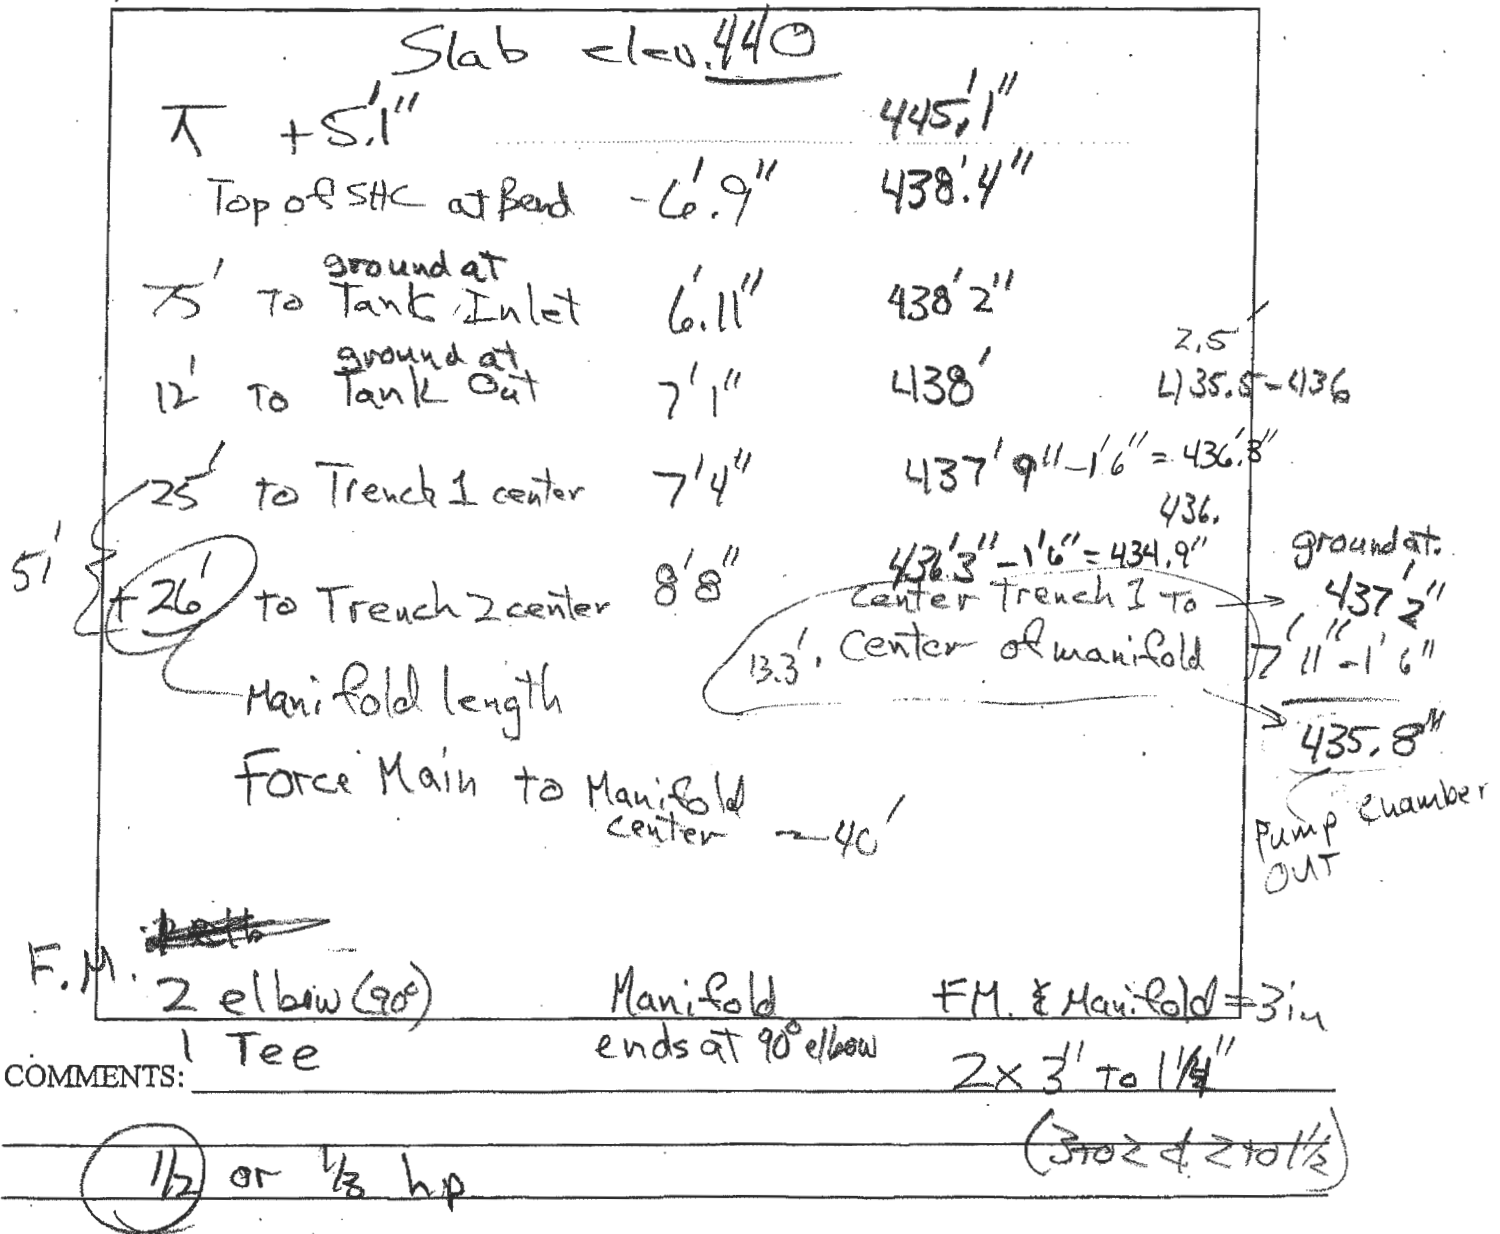 Slab elev. 440
⊼ +5.'1" 445.'1"
Top of SHC at Bend -6'.9" 438'.4"
75' To ground at Tank Inlet 6.'11" 438' 2"
12' To ground at Tank Out 7' 1" 438'
2.5
435.5-436
25' to Trench 1 center 7' 4" 437' 9" -1'6" = 436.'3"
436.
51'
+26' to Trench 2 center 8' 8" 436.'3" -1'6" = 434.9"
center Trench 1 To
13.3'. center of manifold
ground at.
437' 2"
7' 11" -1' 6"
435.8"
Pump Chamber
OUT
Manifold length
Force Main to Manifold
center ~40'
F.M.
2 elbow (90°) Manifold F.M. & Manifold = 3in
1 Tee ends at 90° elbow 2 x 3" To 1 1/4"
COMMENTS:
(3 to 2 & 2 to 1 1/2)
1/2 or 1/3 hp